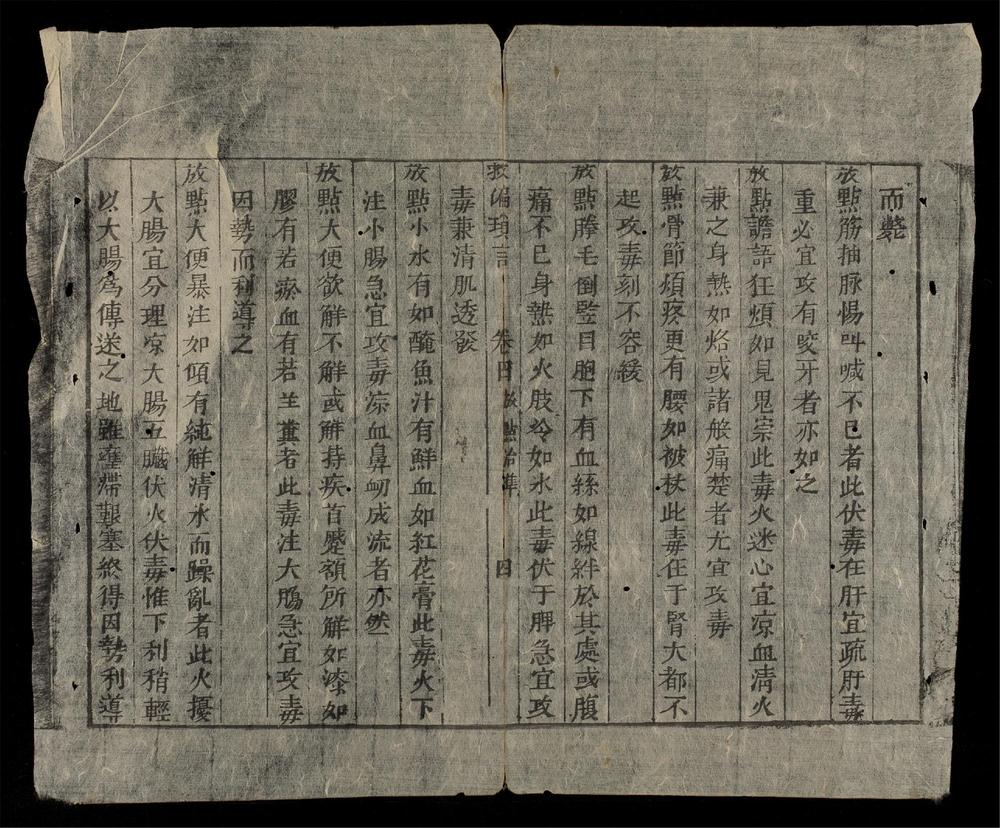 而斃
放點筋抽脉惕叫喊不已者此伏毒在肝宜疏肝毒
重必宜攻有咬牙者亦如之
放點譫語狂煩如見鬼祟此毒火迷心宜凉血清火
兼之身熱如烙或諸般痛楚者尤宜攻毒
放點骨節煩疼更有腰如被杖此毒在于腎大都不
起攻毒刻不容緩
放點腠毛倒竪目胞下有血絲如線絆於其處或腹
痛不已身熱如火肢冷如氷此毒伏于脾急宜攻
毒兼清肌透發
救偏瑣言 卷四 放點治準 四
放點小水有如醃魚汁有鮮血如紅花膏此毒火下
注小腸急宜攻毒凉血鼻衂成流者亦然
放點大便欲解不解或解持疾首蹙額所解如漆如
膠有若瘀血有若羊糞者此毒注大膓急宜攻毒
因勢而利導之
放點大便暴注如傾有純解清水而躁亂者此火擾
大腸宜分理凉大腸五臟伏火伏毒惟下利稍輕
以大腸爲傳送之地雖壅滯艱塞終得因勢利導